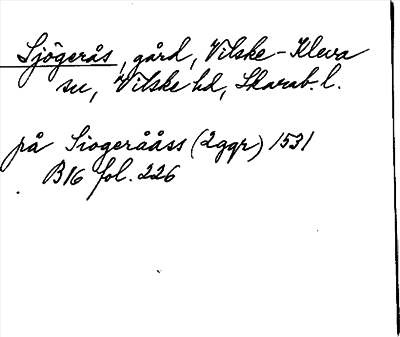 Sjögerås, gård, Vilske-Kleva
sn, Vilske hd, Skarab. l.
på Siogerååss (2 ggr) 1531
B16 fol. 226